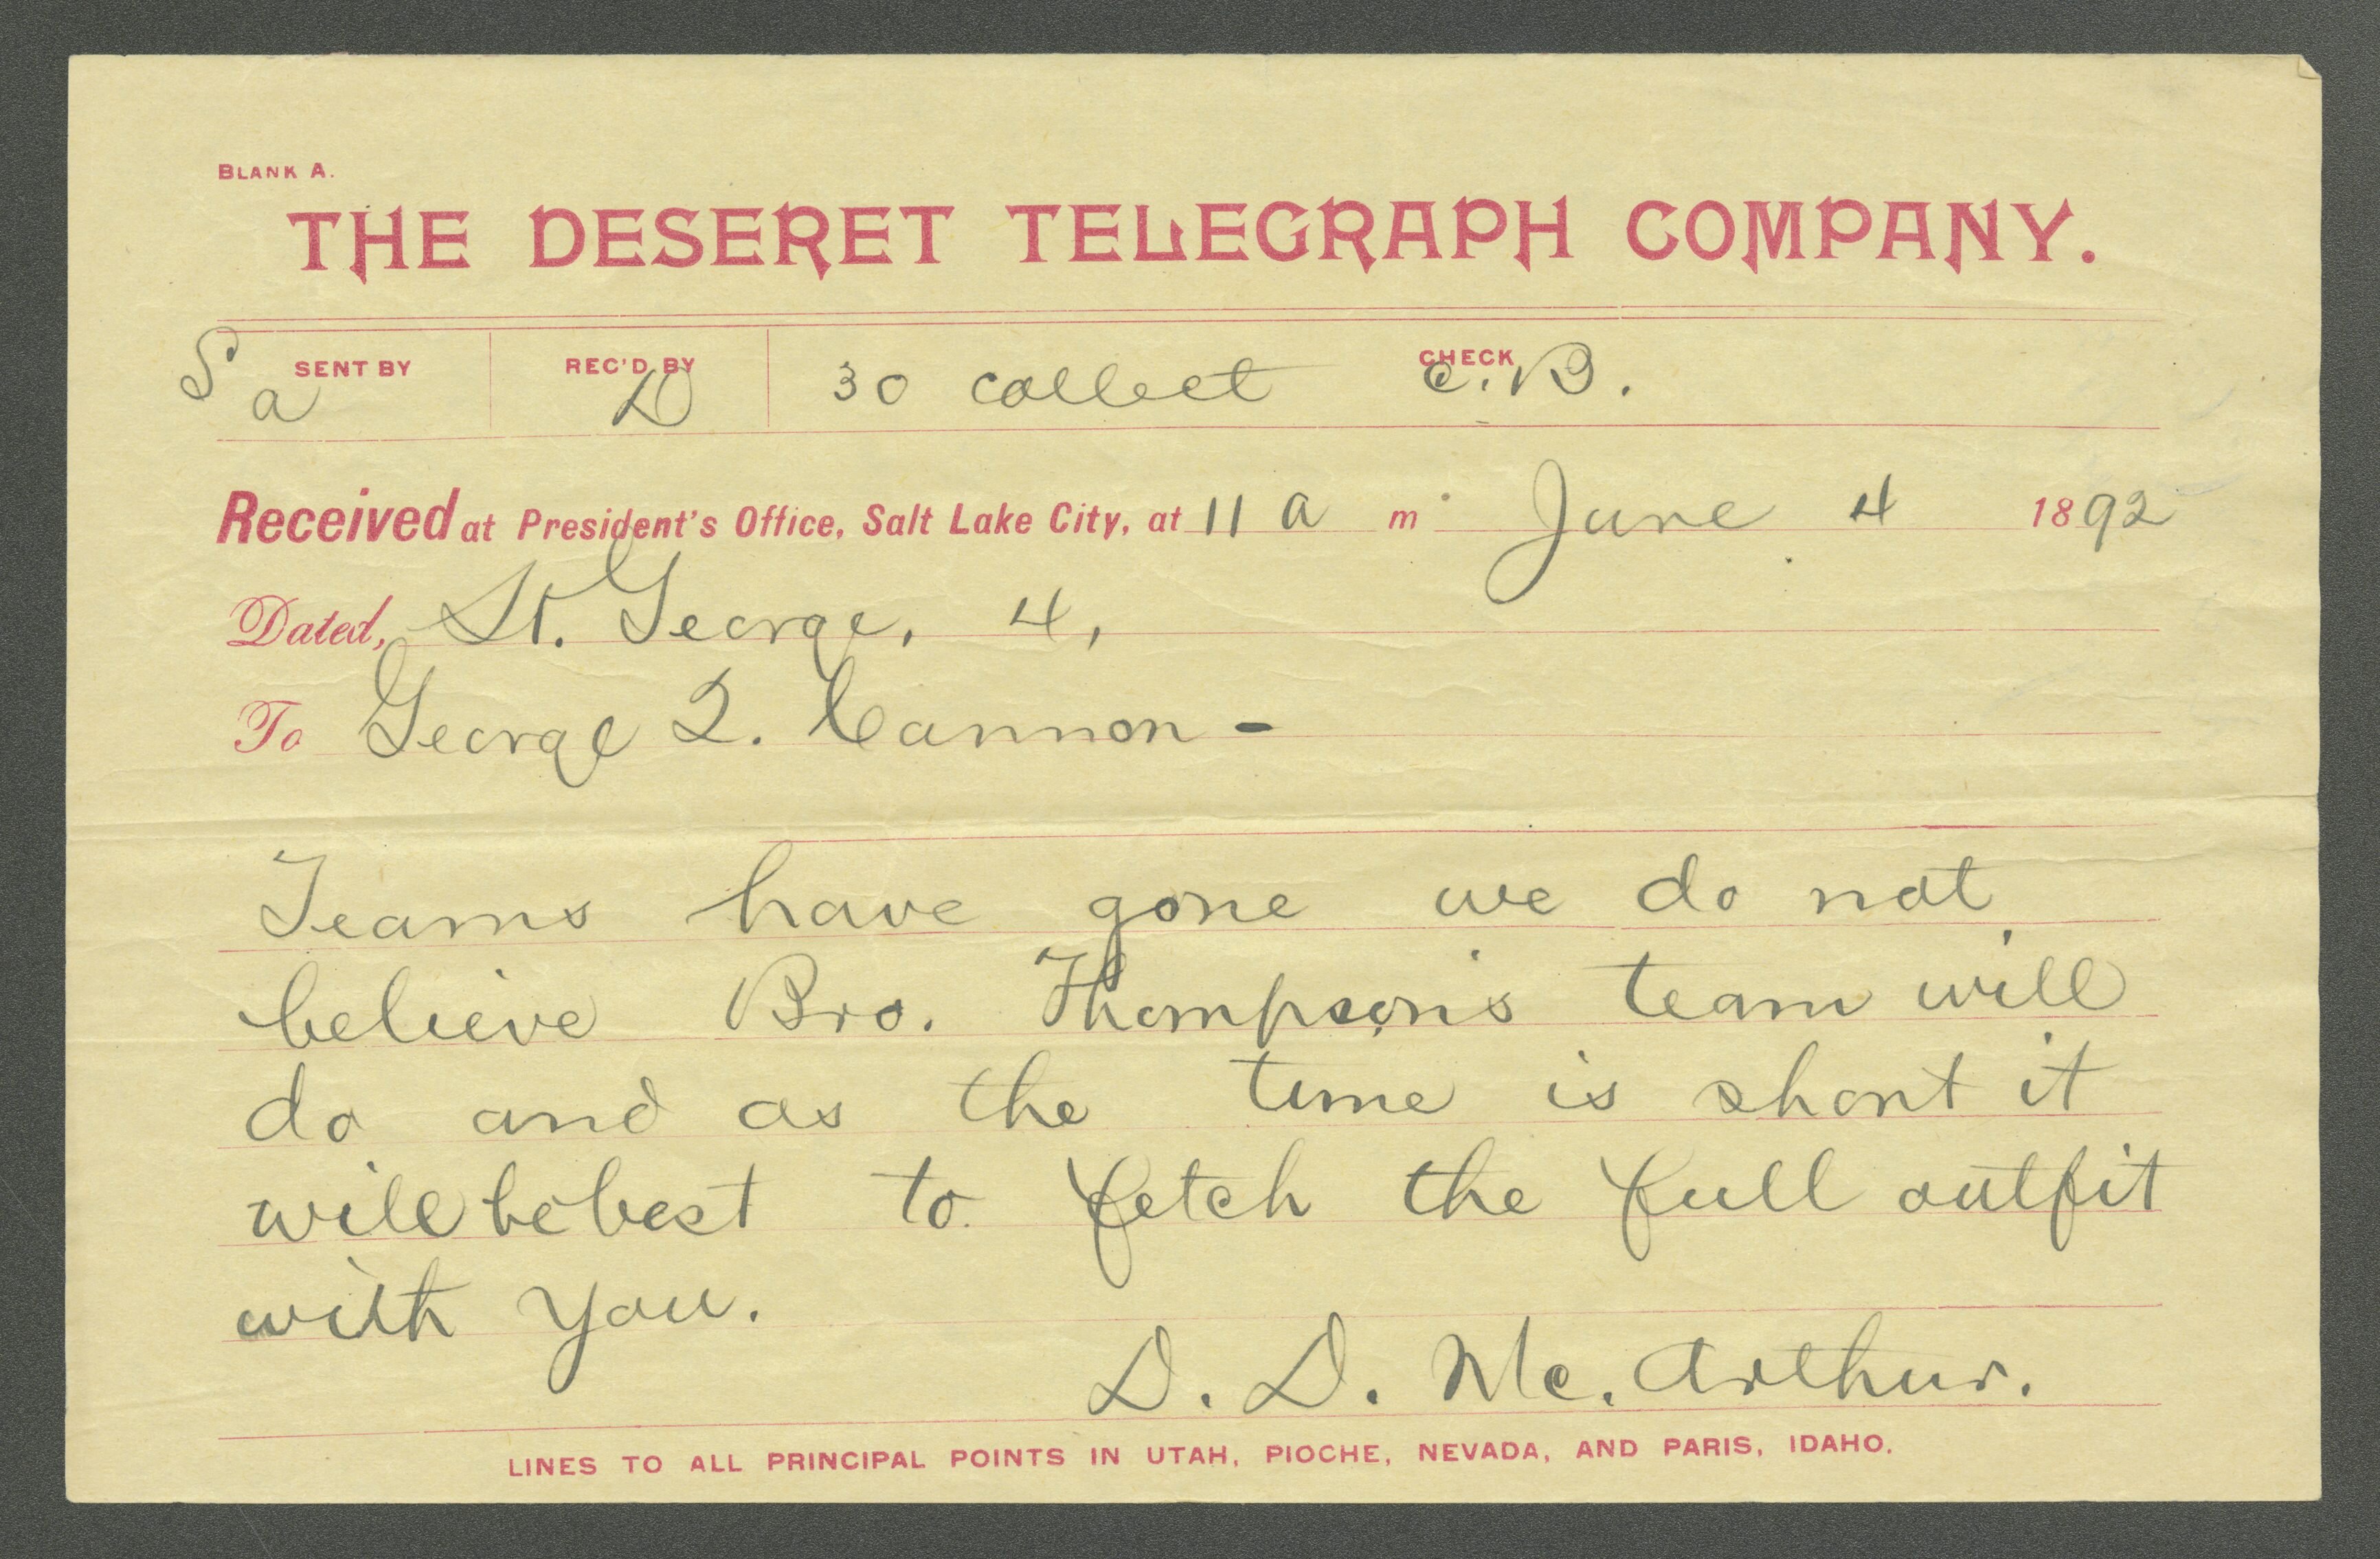 BLANK A.
THE DESERET TELEGRAPH COMPANY.
SENT BY REC'D BY CHECK
Sa D 30 collect C.B.
Received at President's Office, Salt Lake City, at 11 a m June 4 1892
Dated, St. George, 4,
To George Q. Cannon -
Teams have gone we do not
believe Bro. Thompson's team will
do and as the time is short it
will be best to fetch the full outfit
with you.
D. D. Mc. Arthur.
LINES TO ALL PRINCIPAL POINTS IN UTAH, PIOCHE, NEVADA, AND PARIS, IDAHO.